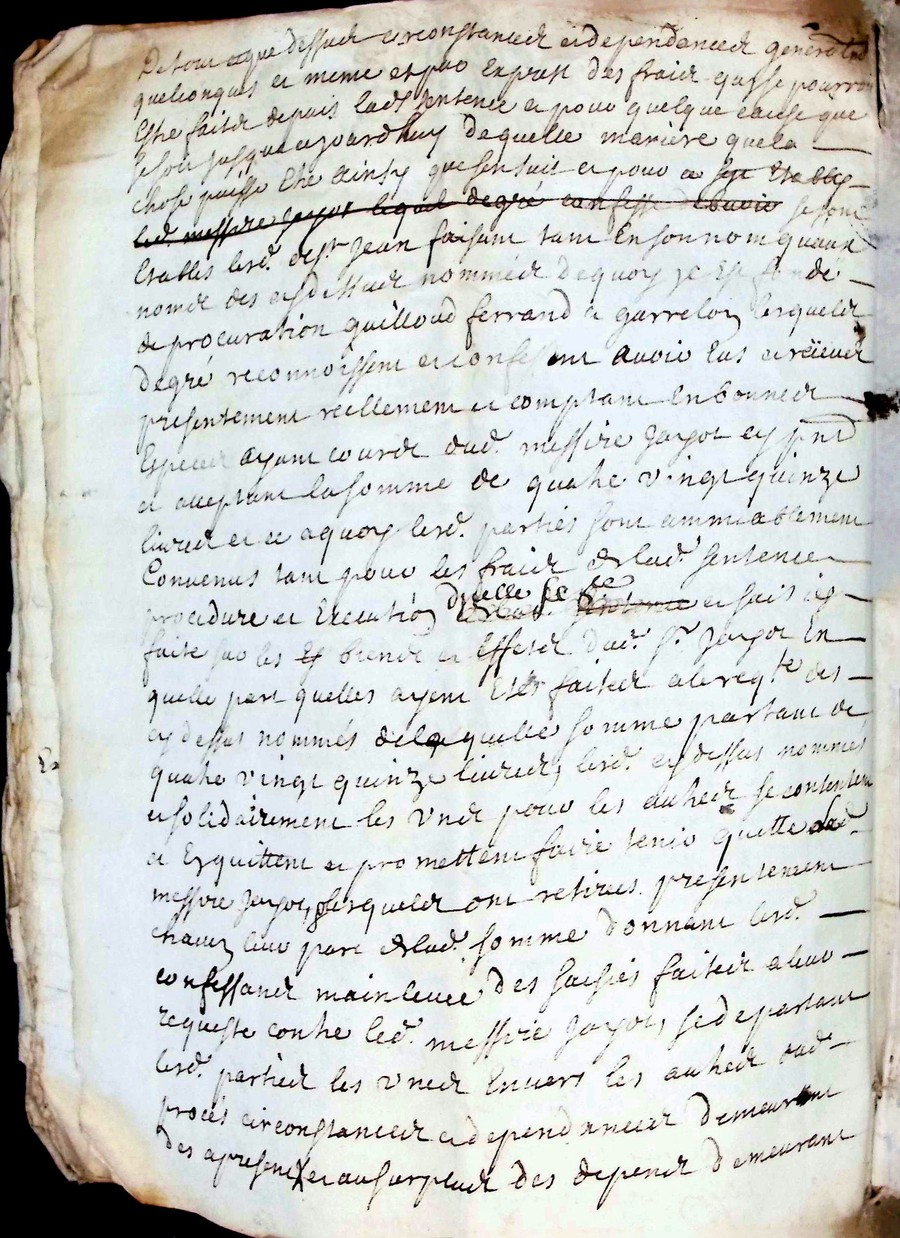 De tout ce que dessus circonstances et dependances generalles
quelconques et meme et par Expres des fraix qui se pourroint
Estre faites depuis lad. sentence et pour quelque cause que
se soit jusques a jourdhuy de quelle maniere que la
chose puisse Etre Ainsy que sensuit et pour ce
led. messire Jayot lequel degré confesse debvoir se sont
Etablis lesd. de St Jean faisant tant En son nom quaux
noms des cydessus nommés de quoy
de procuration Guilloud ferrand et garrelon lesquels
degré reconnoissent et confessent avoir Eus et reçeues
presentement reellement et comptant En bonnes
Especes ayant cours dud. messire Jayot cy pnt
et acceptant la somme de quatre vingt quinze
livres et ce a quoy lesd. parties sont ammiablement
Convenus tant pour les fraix de lad. sentence
procedure et Execution dicelle et saisies
faite sur les biens et Effets dud. Sr. Jayot En
quelle part quelles ayent Etés faites a la reqte des
cy dessus nommés de laquelle somme partant de
quatre vingt quinze livres, lesd. cy dessus nommes
et solidairement les uns pour les autres se contentent
et Enquittent et promettent faire tenir quitte led.
messire Jayot, lesquels ont retirés presentement
chacun leur part de lad. somme donnant lesd.
confessants mainlevée des saisies faites a leur
requeste contre led. messire Jayot, se departant
lesd. parties les unes Envers les autres dud.
procés circonstances et dependances demeurant
des a present et au surplus des depends demeurant